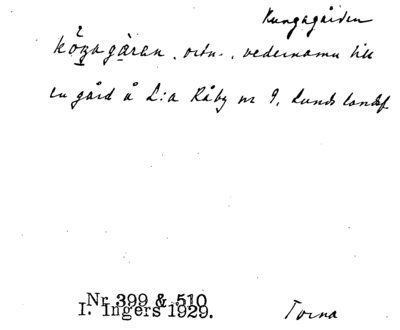 Kungagården
köngagåran, ortn., vedernamn till
en gård å L:a Råby nr 9, Lunds landsf
Nr 399 & 510
I. Ingers 1929.
Torna